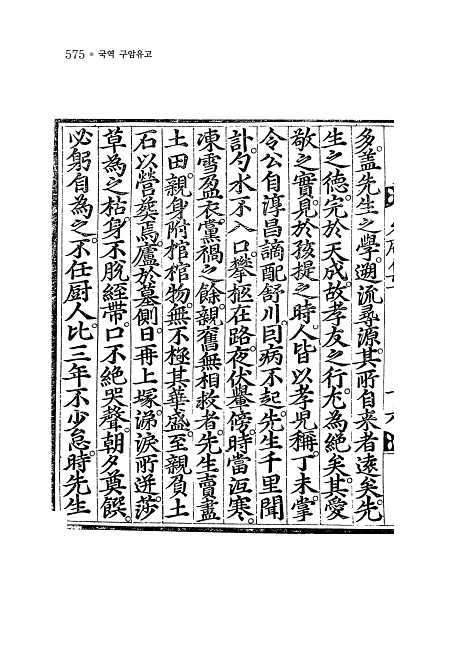 575 ● 국역 구암유고
多盖先生之學遡流尋源其所自来者遠矣先
生之德完於天成故孝友之行尤為絕矣其愛
敬之實見於孩提之時人皆以孝兒稱丁未掌
令公自淳昌謫配舒川囙病不起先生千里聞
訃勺水不入口攀柩在路夜伏轝傍時當沍寒
凍雪盈衣黨禍之餘親舊無相救者先生賣盡
土田親身附棺棺物無不極其華盛至親負土
石以營葬焉廬於墓側日再上塚涕淚所迸莎
草為之枯身不脫絰帶口不絕哭聲朝夕奠饌
必躬自為之不任厨人比三年不少怠時先生